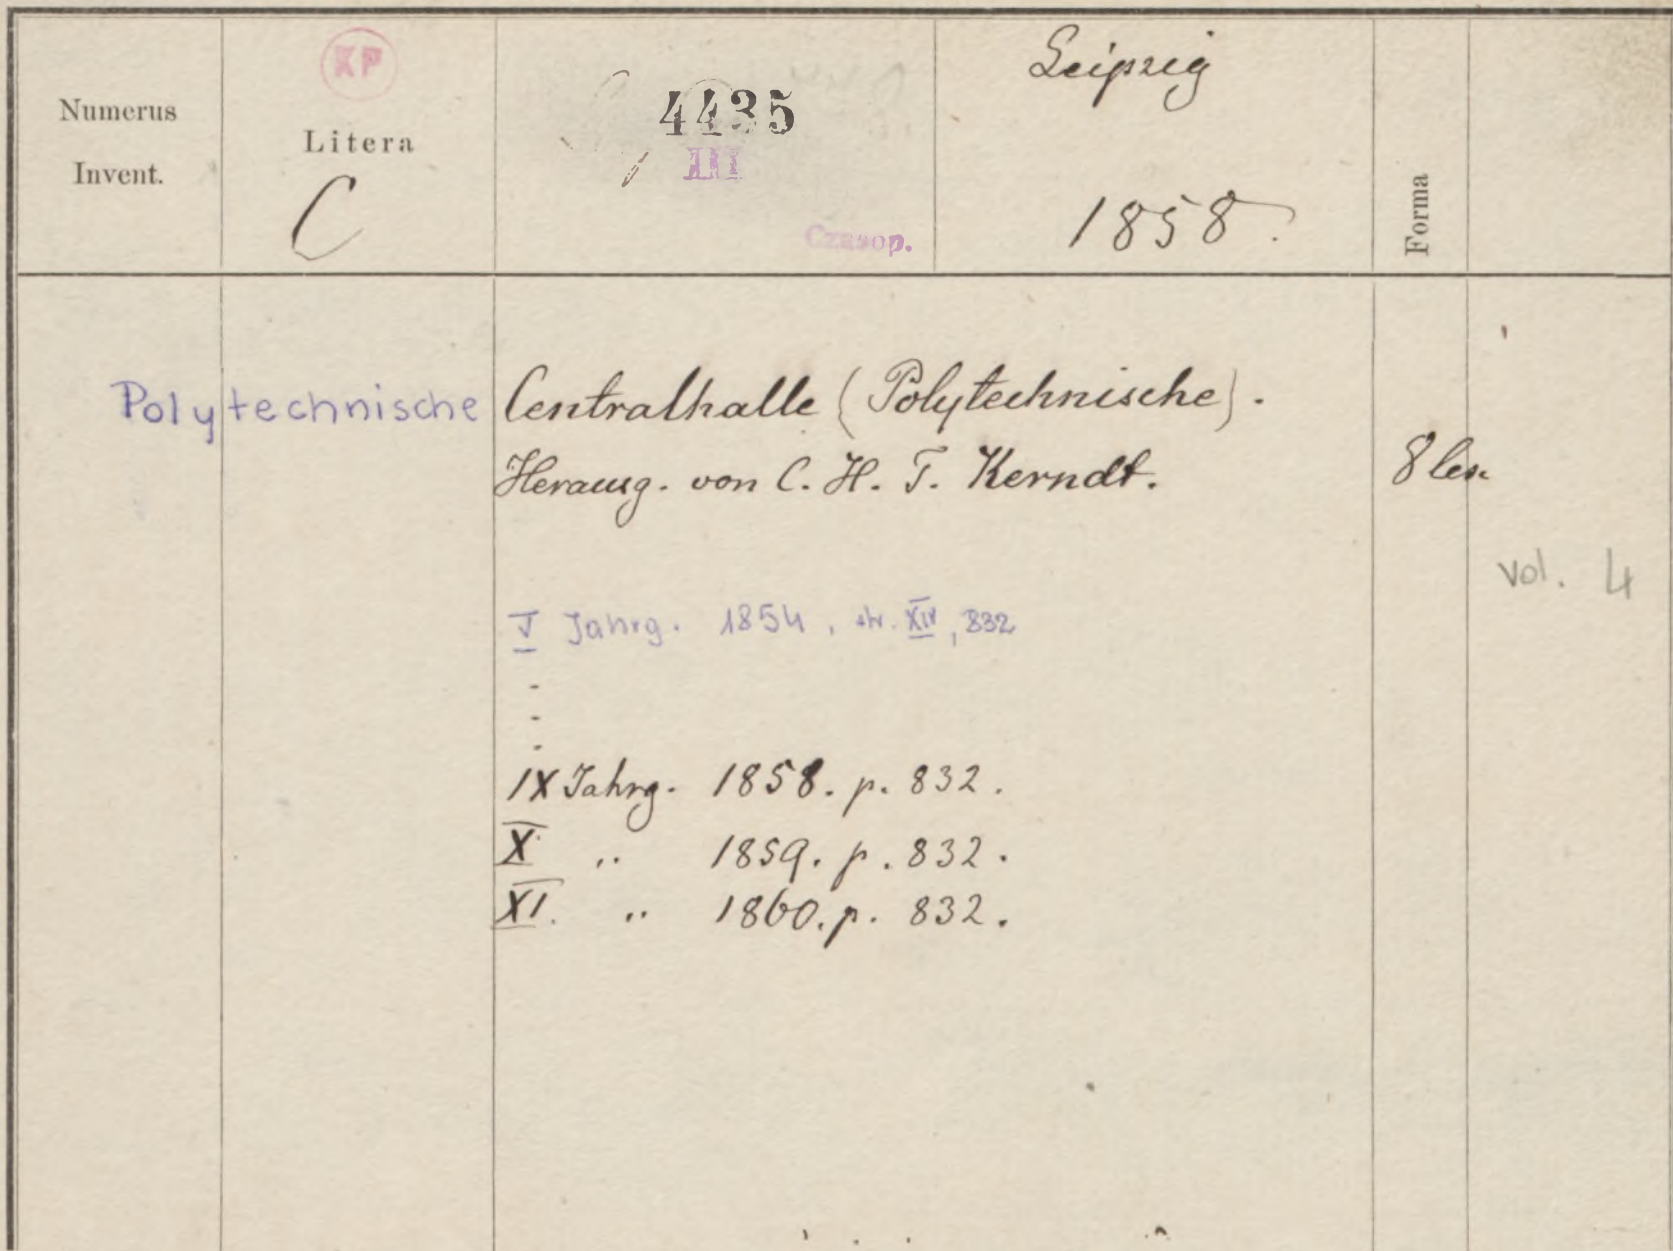 KP
Numerus
Invent.
Litera
C
4435
III
Czasop.
Leipzig
1858.
Forma
Polytechnische Centralhalle (Polytechnische).
Herausg. von C. H. T. Kerndt.
8 lex.
vol. 4
V Jahrg. 1854, str. XIV, 832
IX Jahrg. 1858. p. 832.
X. " 1859. p. 832.
XI. " 1860. p. 832.